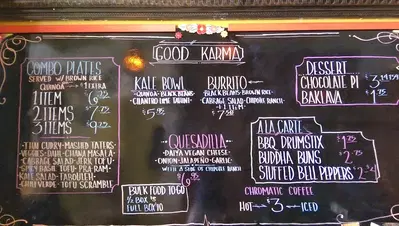 GOOD KARMA
COMBO PLATES
SERVED W/ BROWN RICE
QUINOA
1 ITEM
2 ITEMS
3 ITEMS
THAI CURRY-MASHED TATERS
VEGGIES-DAHL-CHANA MASALA
CABBAGE SALAD-JERK TOFU
SPICY BASIL TOFU-
KALE SALAD-TABOULEH
CHILI VERDE-TOFU SCRAMBLE
KALE BOWL
QUINOA-BLACK BEANS
CILANTRO LIME TAHINI
BURRITO
BLACK BEANS-BROWN RICE
CABBAGE SALAD-CHIPOTLE RANCH
+ 1 ITEM
QUESADILLA
DAIYA VEGAN CHEESE
ONION-JALAPEÑO-GARLIC
WITH A SIDE OF CHIPOTLE RANCH
BULK FOOD TO GO
½ BOX $5
FULL BOX $10
DESSERT
CHOCOLATE PI
BAKLAVA
A LA CARTE
BBQ DRUMSTIX
BUDDHA BUNS
STUFFED BELL PEPPERS
CHROMATIC COFFEE
HOT 3 ICED